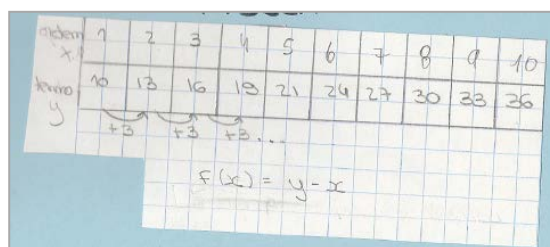 ordem x 1 2 3 4 5 6 7 8 9 10
termo y 10 13 16 19 21 24 27 30 33 36
+3 +3 +3...
F(x) = y - x